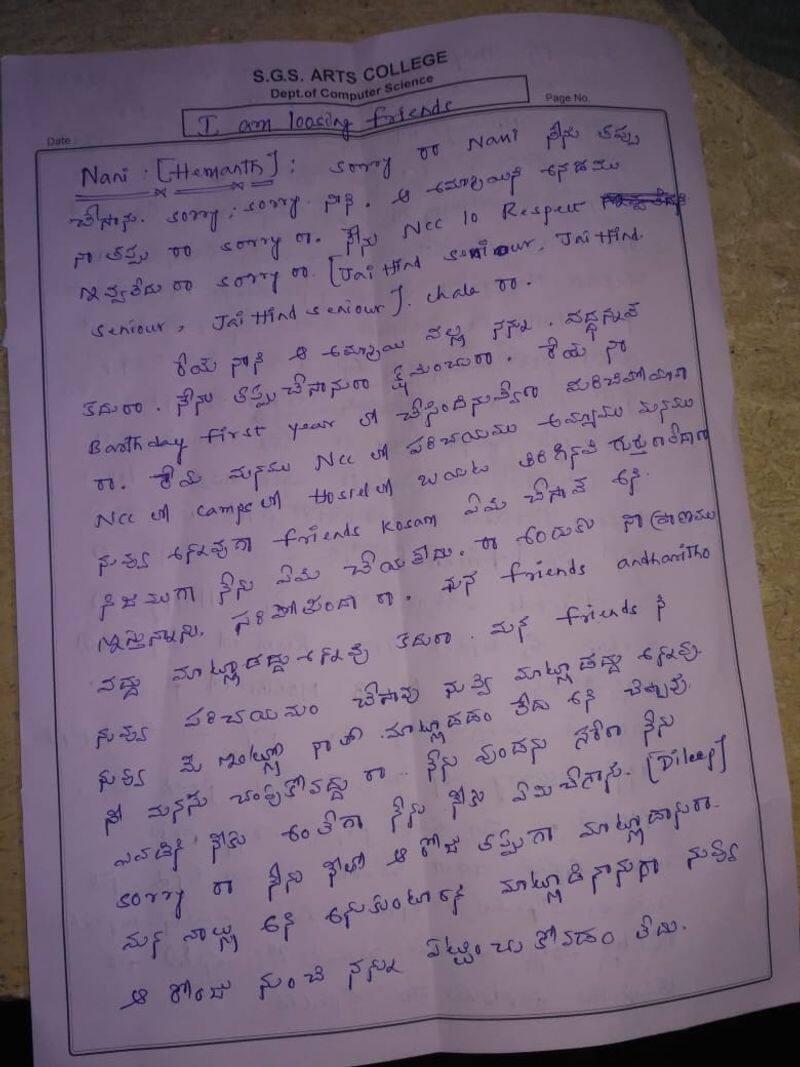 S.G.S. ARTS COLLEGE
Dept.of Computer Science
Date : Page No.
I am loosing friends
Nani : [Hemanth] : sorry రా Nani నేను తప్పు
చేసాను. sorry ; sorry నాని. ఆ అమ్మాయిని అనడము
నా తప్పు రా sorry రా. నేను Ncc lo Respect
ఇవ్వలేదు రా sorry రా. [Jai Hind seniour, Jai Hind
seniour, Jai Hind seniour]. chala రా.
రేయ్ నాని ఆ అమ్మాయి వల్ల నన్ను వద్దన్నావ్
కదురా. నేను తప్పు చేసానురా క్షమించురా. రేయ్ నా
Barthday first year లో చేసింది నువ్వేరా మరిచిపోయావా
రా. రేయ్ మనము Ncc లో పరిచయము అయ్యాము మనము
Ncc లో camps లో Hostel లో బయట తిరిగినవి గుర్తు రాలేదారా
నువ్వు అన్నావుగా friends kosam ఏమి చేసావ్ అని.
నిజముగా నేను ఏమి చేయలేదు. రా అందుకు నా ప్రాణము
ఇస్తున్నాను. సరిపోతుందా రా. మన friends andharitho
వద్దు మాట్లాడద్దు అన్నావు కదురా. మన friends ని
నువ్వు పరిచయం చేసావు నువ్వే మాట్లాడద్దు అన్నావు.
నువ్వు మీ ఇంట్లో నాతో మాట్లాడడం లేదు అని చెప్పావు.
నీ మనసు చంపుకోవద్దు రా. నేను వుండను సరేరా నేను
ఎవడిని నీకు అంతేగా నేను నీకు ఏమి చేసాను. [Dileep]
sorry రా నేను నీతో ఆ రోజు తప్పుగా మాట్లాడానురా.
మన వాల్లు అని అనుకుంటానే మాట్లాడినానురా నువ్వు
ఆ రోజు నుంచి నన్ను పట్టించుకోవడం లేదు.